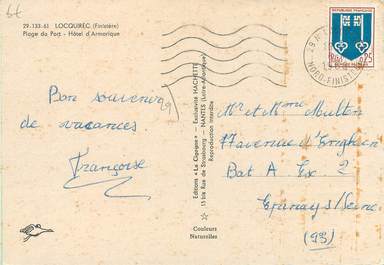 29-133-61 LOCQUIREC (Finistère)
Plage du Port - Hôtel d'Armorique
Bon souvenir
de vacances
Françoise
Editions "La Cigogne" - Exclusivité HACHETTE
15 bis Rue de Strasbourg - NANTES (Loire-Atlantique)
Reproduction Interdite
Couleurs
Naturelles
REPUBLIQUE FRANÇAISE
0,25
NORD-FINISTERE
Mr et Mme Multon
11 avenue d'Enghien
Bat A Ex 2
Epinay s/Seine
(93)